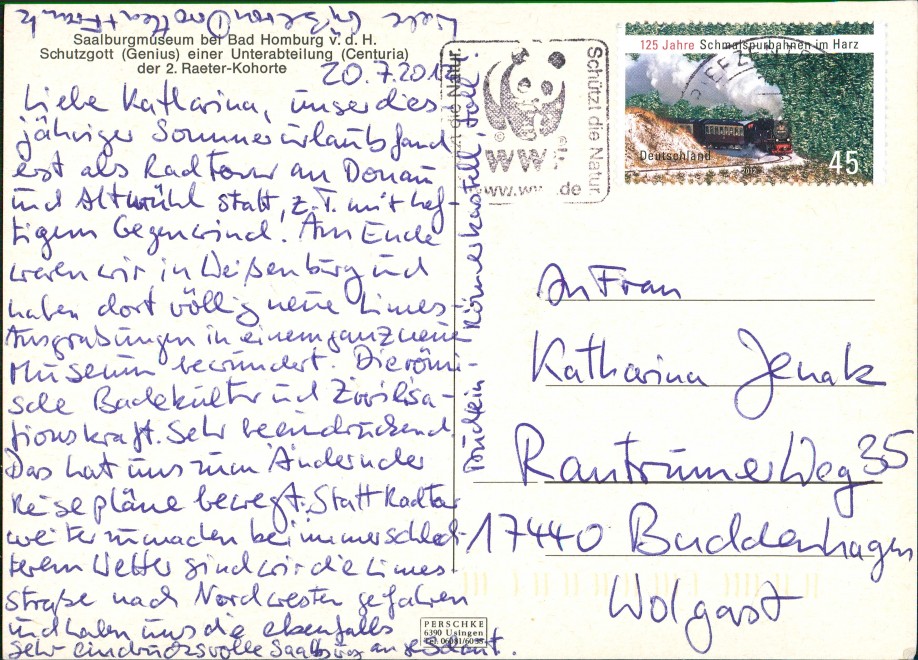 Saalburgmuseum bei Bad Homburg v. d. H.
Schutzgott (Genius) einer Unterabteilung (Centuria)
der 2. Raeter-Kohorte
20.7.2012
Liebe Katharina, unser dies
jähriger Sommerurlaub fand
erst als Radtour an Donau
und Altmühl statt, z.T. mit hef-
tigem Gegenwind. Am Ende
waren wir in Weißenburg und
haben dort völlig neue Limes-
Ausgrabungen in einem ganz neuen
Museum bewundert. Die römi-
sche Badekultur und Zivilisa-
tionskraft. Sehr beeindruckend.
Das hat uns zum Ändern der
Reisepläne bewegt. Statt Radtour
weiterzumachen bei immer schlech-
terem Wetter sind wir die Limes-
straße nach Nordwesten gefahren
und haben uns die ebenfalls
sehr eindrucksvolle Saalburg
und ein Römerkastell. Toll!
Liebe Grüße von Dorothea + Frank
Schützt die Natur
WWF
www.ww .de
125 Jahre Schmalspurbahnen im Harz
Deutschland
2012
45
An Frau
Katharina Jenak
Rantrumer Weg 35
17440 Buddenhagen
Wolgast
PERSCHKE
6390 Usingen
Tel. 06081/6038